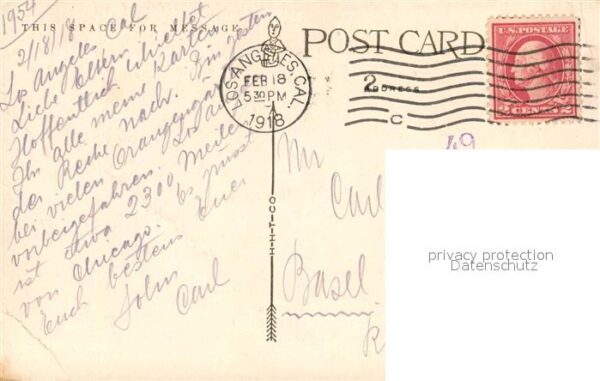 1954
THIS SPACE FOR MESSAGE
2/18/18
Los Angeles Cal
Liebe Eltern
Hoffentlich erhieltet
Ihr alle meine Karten
der Reihe nach. Bin gestern
bei vielen Orangengär
vorbeigefahren. Los An
ist etwa 2300 Meilen
von Chicago. Es grüsst
Euch bestens Euer
Sohn Carl
POST CARD
ADDRESS
LOS ANGELES, CAL.
FEB 18
5 30 PM
1918
2
C
U.S. POSTAGE
2 CENTS 2
49
H-H-T-CO
Mr
Carl
Basel
privacy protection
Datenschutz